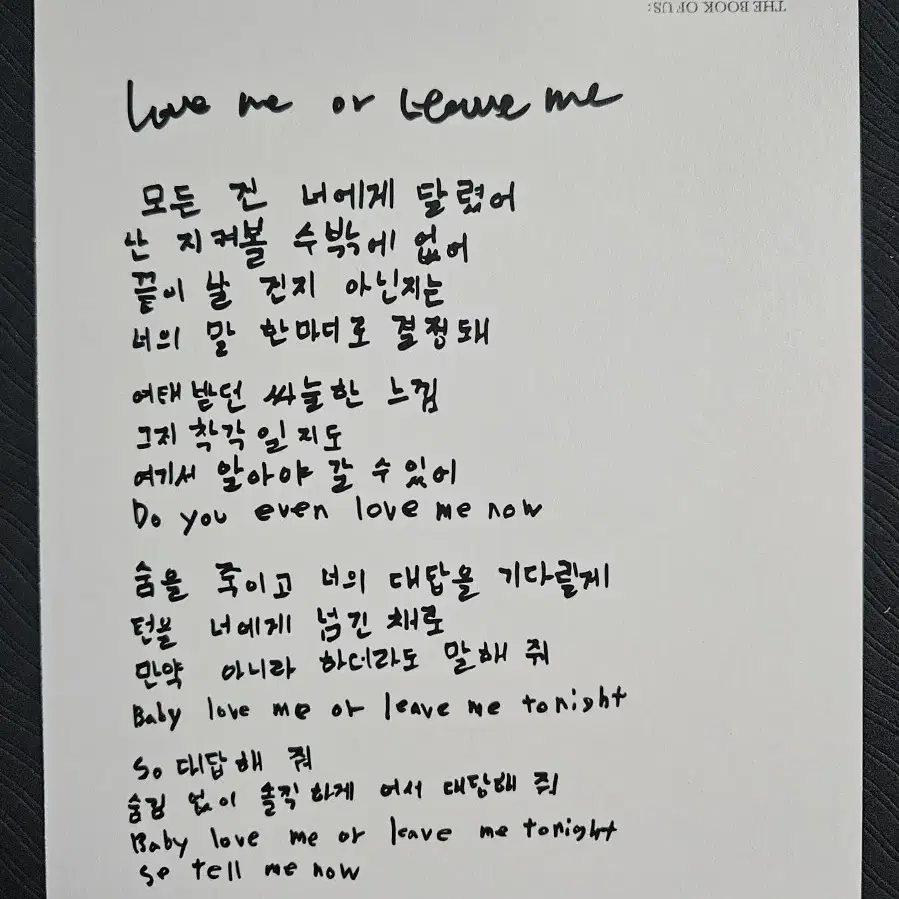 THE BOOK OF US:
Love me or Leave me
모든 건 너에게 달렸어
난 지켜볼 수밖에 없어
끝이 날 건지 아닌지는
너의 말 한마디로 결정돼
여태 받던 싸늘한 느낌
그저 착각일 지도
여기서 알아야 갈 수 있어
Do you even love me now
숨을 죽이고 너의 대답을 기다릴게
턴을 너에게 넘긴 채로
만약 아니라 하더라도 말해 줘
Baby love me or leave me tonight
So 대답해 줘
숨김 없이 솔직하게 어서 대답해 줘
Baby love me or leave me tonight
so tell me now